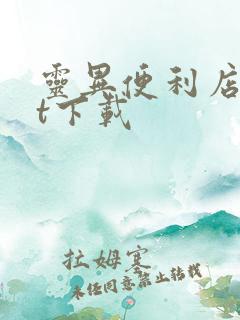 靈異便利店
t下載
拉姆寒
未经同意禁止转载